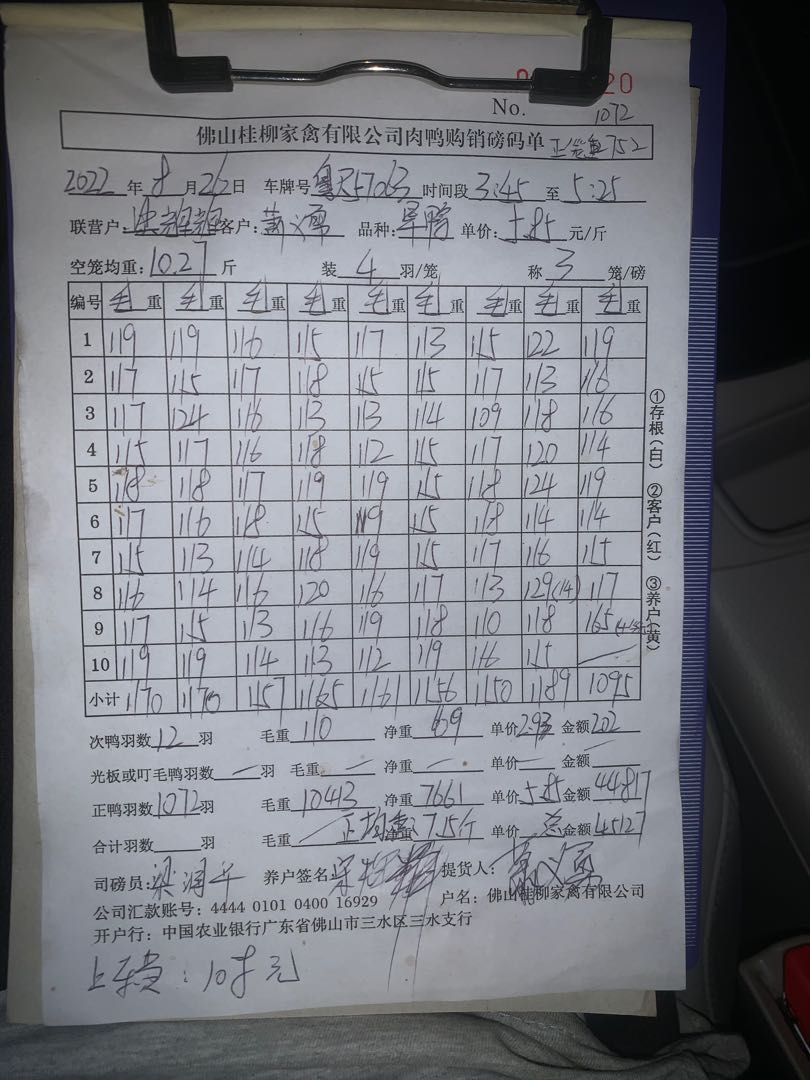 20
No. 1072
佛山桂柳家禽有限公司肉鸭购销磅码单 752
2022 年 8 月 26 日 车牌号 57063 时间段 3:45 至 5:25
联营户: 客户: 品种: 单价: 5.85 元/斤
空笼均重: 10.27 斤 装 4 羽/笼 称 3 笼/磅
编号 毛重 毛重 毛重 毛重 毛重 毛重 毛重 毛重 毛重
1 119 119 116 115 117 113 115 122 119
2 117 115 117 118 115 115 117 113 116
3 117 124 116 113 113 114 109 118 116
4 115 117 116 118 112 115 117 120 114
5 118 118 117 119 119 115 118 124 119
6 117 116 118 115 119 115 118 114 114
7 115 113 114 118 119 115 117 116 115
8 116 114 116 120 116 117 113 129(14) 117
9 117 115 113 116 119 118 110 118 165
10 119 119 114 113 112 119 116 115
小计 1170 1170 1157 1165 1161 1156 1150 1189 1095
次鸭羽数 12 羽 毛重 110 净重 69 单价 2.93 金额 202
光板或叮毛鸭羽数 羽 毛重 净重 单价 金额
正鸭羽数 1072 羽 毛重 10413 净重 7661 单价 5.85 金额 44817
合计羽数 羽 毛重 正均重: 7.15斤 单价 总金额 45127
司磅员: 梁润平 养户签名 提货人:
公司汇款账号: 4444 0101 0400 16929 户名: 佛山桂柳家禽有限公司
开户行: 中国农业银行广东省佛山市三水区三水支行
上车费: 108元
①存根(白) ②客户(红) ③养户(黄)